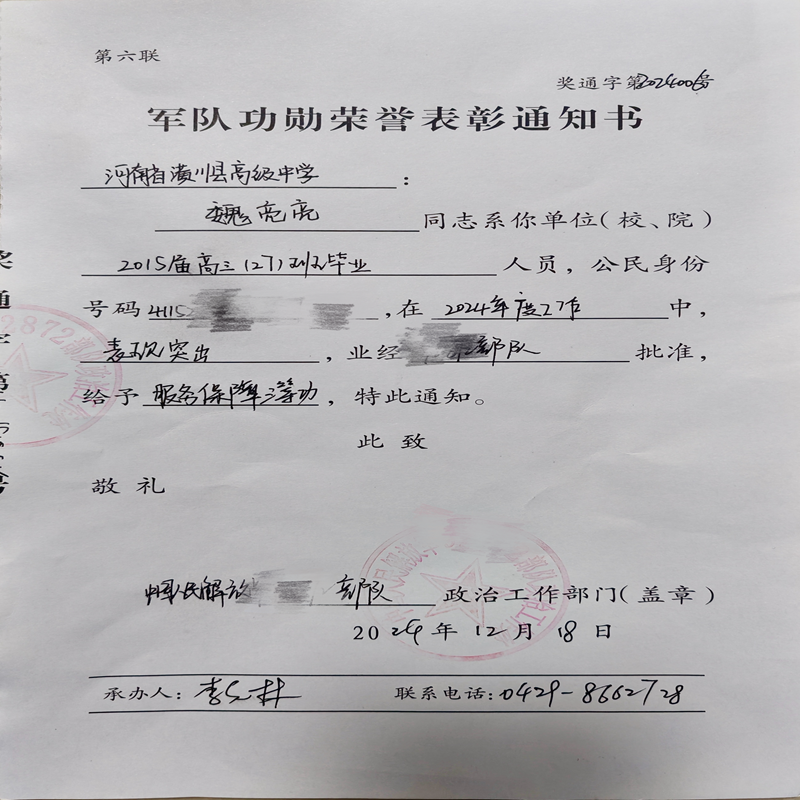 第六联
奖通字第2024006号
军队功勋荣誉表彰通知书
河南省潢川县高级中学：
魏亮亮同志系你单位(校、院)
2015届高三(27)班毕业人员，公民身份
号码4115，在2024年度工作中，
表现突出，业经部队批准，
给予服务保障三等功，特此通知。
此致
敬礼
中国人民解放军部队政治工作部门(盖章)
2024年12月18日
承办人：李 联系电话：0429-8662728